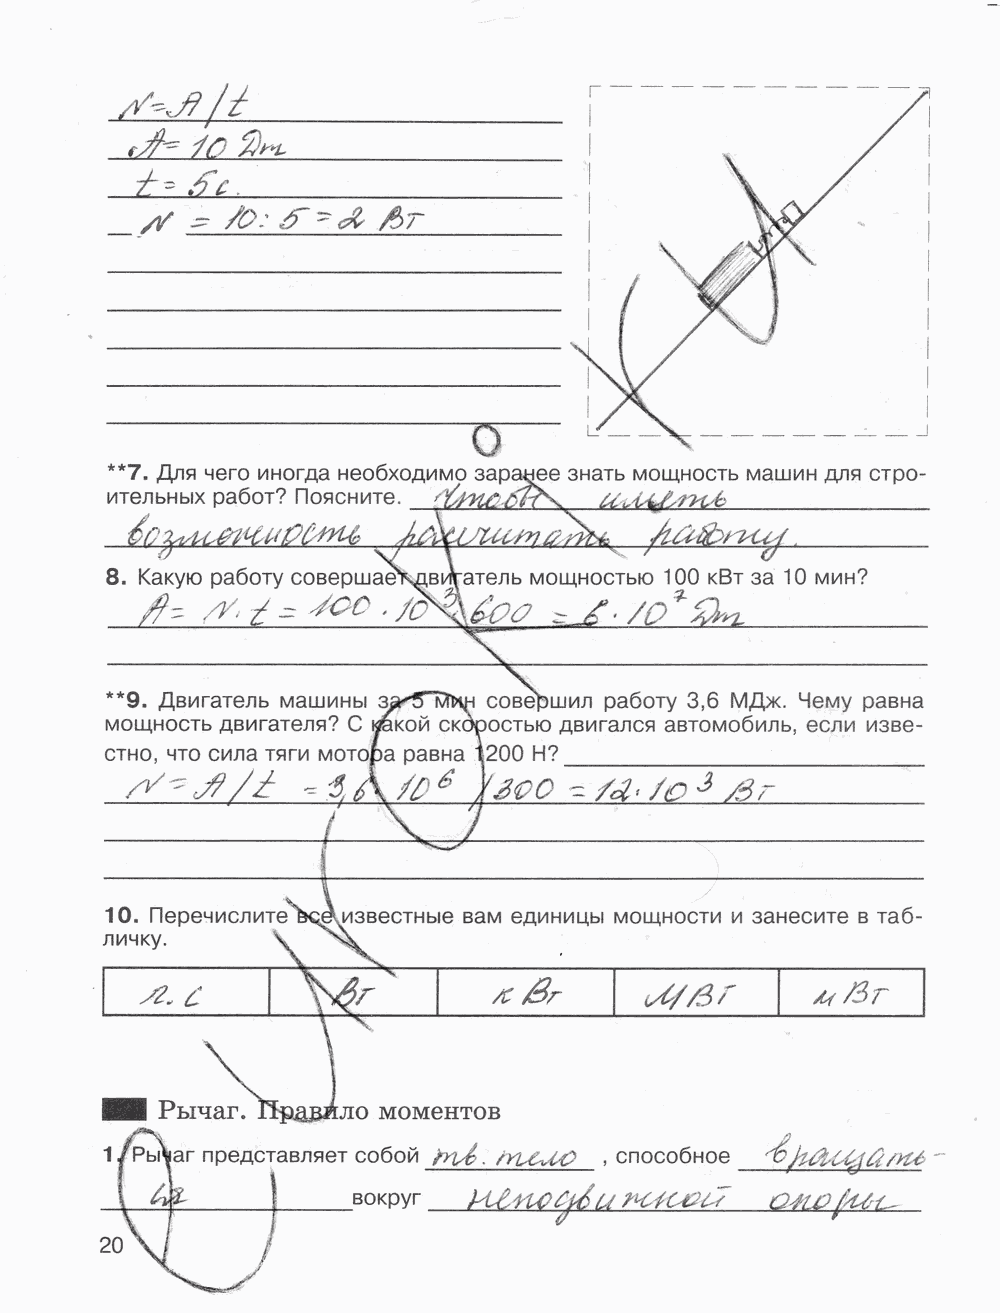 N=A/t
A=10 Дж
t=5c.
N = 10:5=2 Вт
**7. Для чего иногда необходимо заранее знать мощность машин для стро-
ительных работ? Поясните. чтобы иметь
возможность рассчитать работу.
8. Какую работу совершает двигатель мощностью 100 кВт за 10 мин?
A= N·t = 100·10³·600 = 6·10⁷ Дж
**9. Двигатель машины за 5 мин совершил работу 3,6 МДж. Чему равна
мощность двигателя? С какой скоростью двигался автомобиль, если изве-
стно, что сила тяги мотора равна 1200 Н?
N=A/t =3,6·10⁶/300=12·10³ Вт
10. Перечислите все известные вам единицы мощности и занесите в таб-
личку.
л.с Вт кВт МВт мВт
Рычаг. Правило моментов
1. Рычаг представляет собой тв. тело , способное вращать-
ся вокруг неподвижной опоры
20